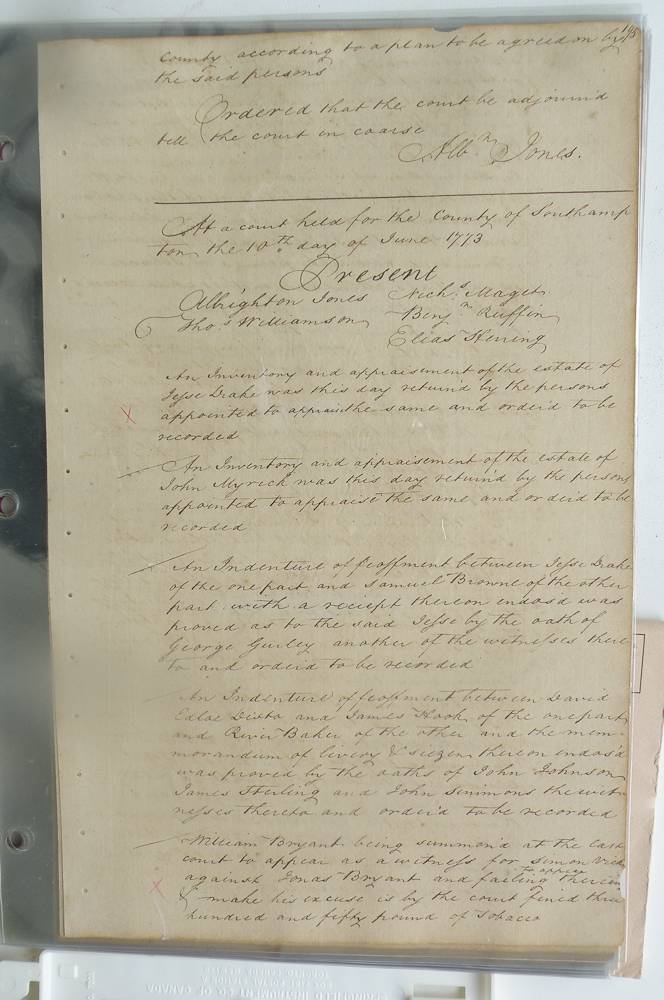 195
County according to a plan to be agreed on by
the said persons
Ordered that the court be adjournd
till the court in coarse
Albn Jones.
At a court held for the County of Southamp
ton the 10th day of June 1773
Present
Albrighton Jones Richs Maget
Thos Williamson Benjn Ruffin
Elias Herring
An Inventory and appraisement of the estate of
Jesse Drake was this day returnd by the persons
appointed to appraise the same and orderd to be
recorded
An Inventory and appraisement of the estate of
John Myrick was this day returnd by the persons
appointed to appraise the same and orderd to be
recorded
An Indenture of feoffment between Jesse Drake
of the one part and Samuel Browne of the other
part with a reciept thereon endosd was
proved as to the said Jesse by the oath of
George Gurley another of the witnesses there
to and orderd to be recorded
An Indenture of feoffment between David
Edloe Dixto and James Hook of the one part
and River Baker of the other and the mem
morandum of livery & siezen thereon endosd
was proved by the oaths of John Johnson
James Sterling and John Simmons the wit
nesses thereto and orderd to be recorded
William Bryant being summond at the last
court to appear as a witness for Simon
against Jonas Bryant and failing to appear therein
& make his excuse is by the court fined three
hundred and fifty pound of Tobacco
SPRINGFIELD INSTRUMENT CO. OF CANADA